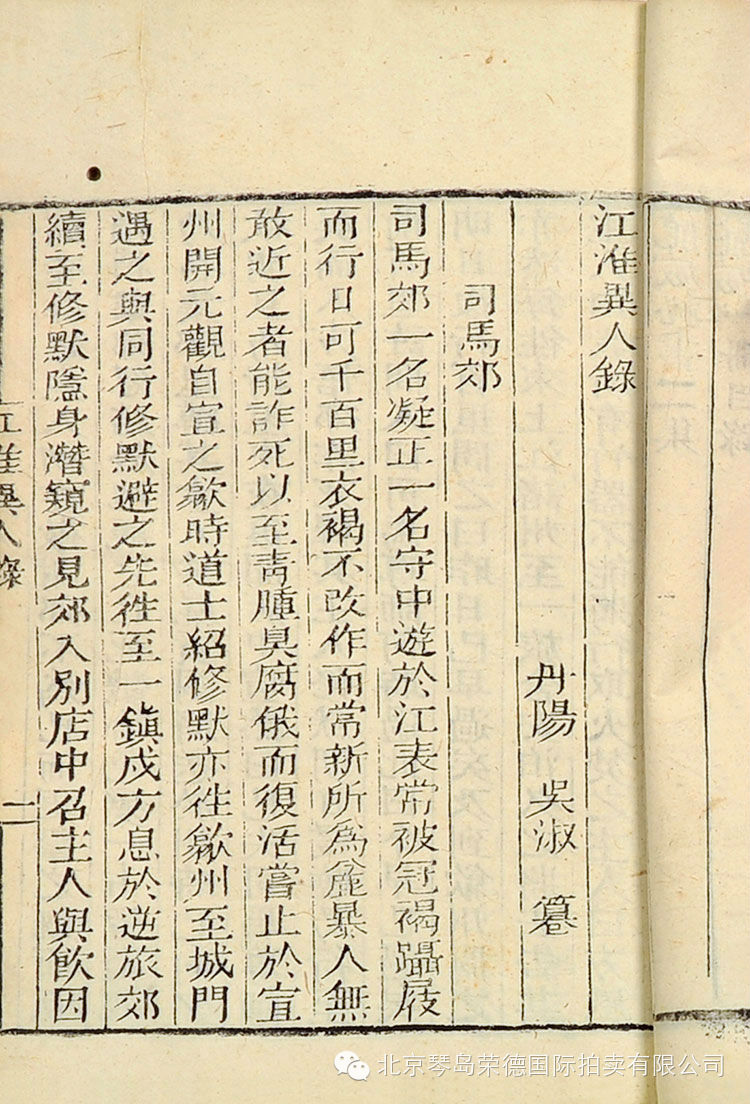 江淮異人錄
丹陽 吳淑 篹
司馬郊
司馬郊一名凝正一名守中遊於江表常被冠褐躡屐
而行日可千百里衣褐不改作而常新所為麄暴人無
敢近之者能詐死以至青腫臭腐俄而復活嘗止於宣
州開元觀自宣之歙時道士紹修默亦徃歙州至城門
遇之與同行修默避之先徃至一鎮戍方息於逆旅郊
續至修默隱身潛窺之見郊入別店中召主人與飲因
江淮異人錄
一
北京琴岛荣德国际拍卖有限公司